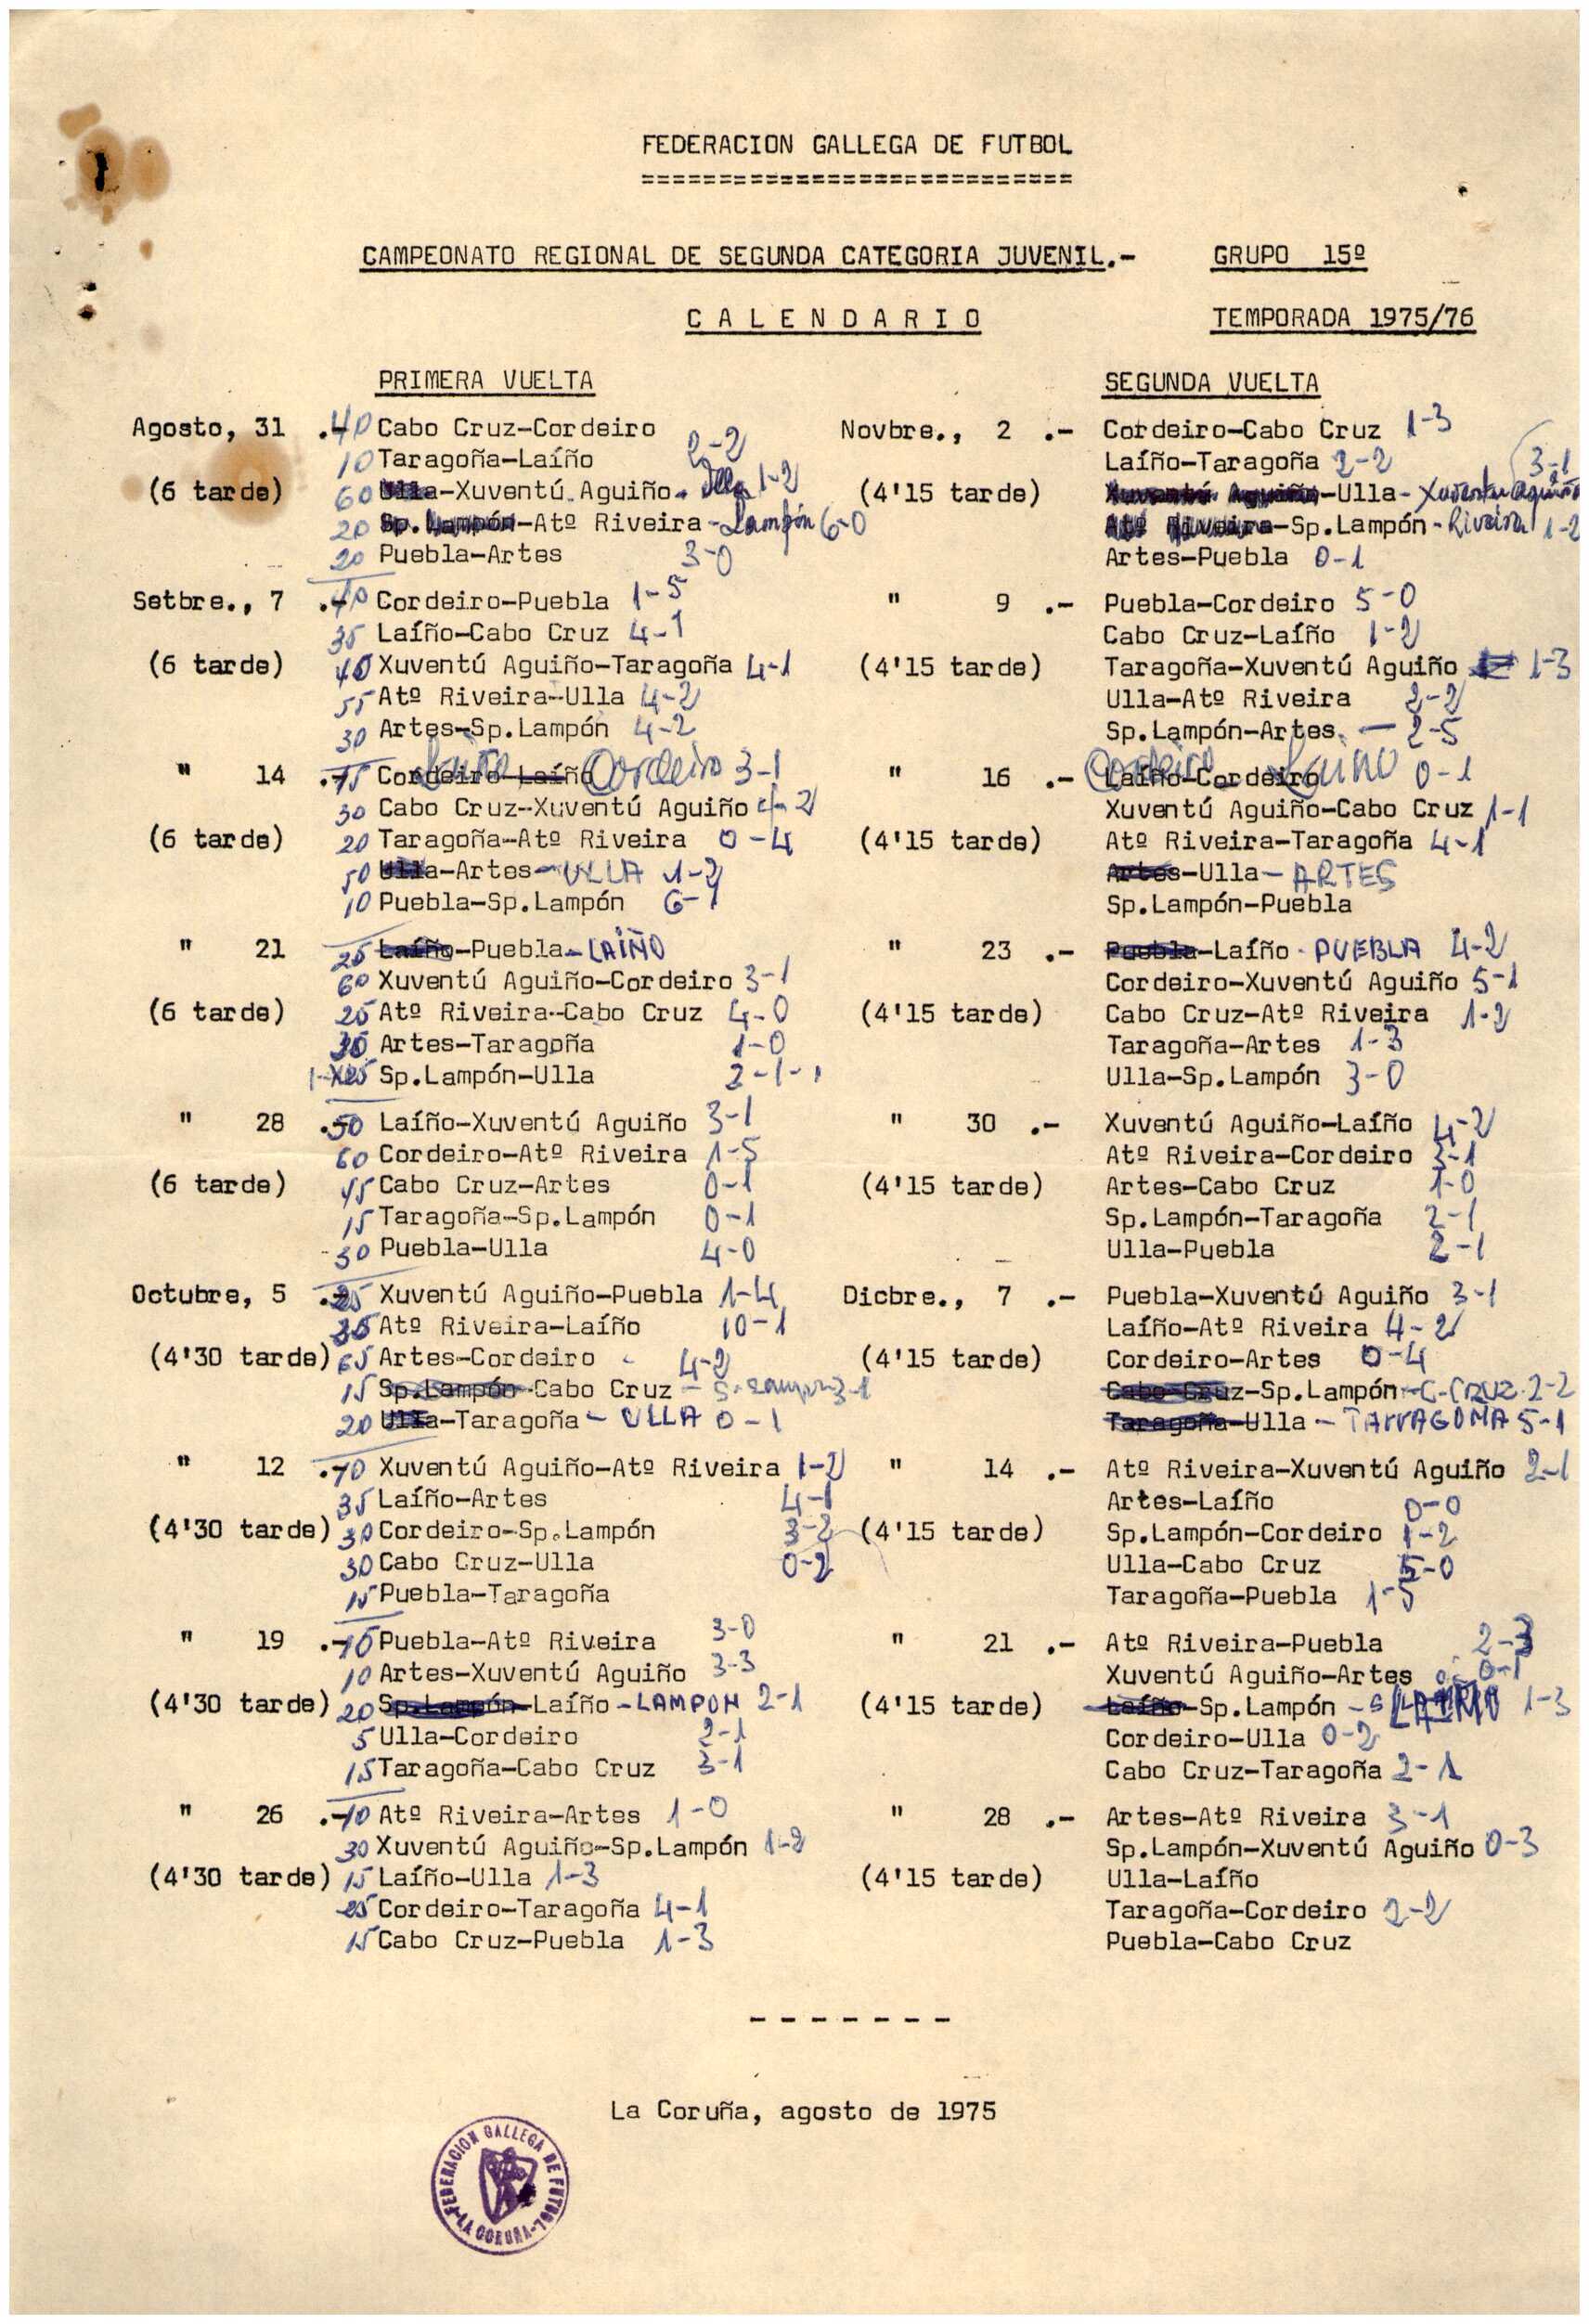 FEDERACION GALLEGA DE FUTBOL
===========================
CAMPEONATO REGIONAL DE SEGUNDA CATEGORIA JUVENIL.- GRUPO 15º
C A L E N D A R I O TEMPORADA 1975/76
PRIMERA VUELTA
Agosto, 31 .- 40 Cabo Cruz-Cordeiro
10 Taragoña-Laíño 2-2
(6 tarde) 60 Ulla-Xuventú Aguiño - Ulla 1-2
20 Sp. Lampón-Atº Riveira - Lampón 6-0
20 Puebla-Artes 3-0
Setbre., 7 .- 40 Cordeiro-Puebla 1-5
35 Laíño-Cabo Cruz 4-1
(6 tarde) 40 Xuventú Aguiño-Taragoña 4-1
55 Atº Riveira-Ulla 4-2
30 Artes-Sp.Lampón 4-2
" 14 .- 75 Cordeiro-Laíño Cordeiro 3-1
30 Cabo Cruz-Xuventú Aguiño 4-2
(6 tarde) 20 Taragoña-Atº Riveira 0-4
50 Ulla-Artes - ULLA 1-2
10 Puebla-Sp.Lampón 6-1
" 21 25 Laíño-Puebla - LAIÑO
60 Xuventú Aguiño-Cordeiro 3-1
(6 tarde) 25 Atº Riveira-Cabo Cruz 4-0
Artes-Taragoña 1-0
Sp.Lampón-Ulla 2-1
" 28 .50 Laíño-Xuventú Aguiño 3-1
60 Cordeiro-Atº Riveira 1-5
(6 tarde) 45 Cabo Cruz-Artes 0-1
15 Taragoña-Sp.Lampón 0-1
30 Puebla-Ulla 4-0
Octubre, 5 Xuventú Aguiño-Puebla 1-4
Atº Riveira-Laíño 10-1
(4'30 tarde) 65 Artes-Cordeiro 4-2
15 Sp.Lampón-Cabo Cruz - S. Lampon 3-1
20 Ulla-Taragoña - ULLA 0-1
" 12 .-70 Xuventú Aguiño-Atº Riveira 1-2
35 Laíño-Artes 4-1
(4'30 tarde) 30 Cordeiro-Sp.Lampón 3-2
30 Cabo Cruz-Ulla 0-2
15 Puebla-Taragoña
" 19 .- Puebla-Atº Riveira 3-0
10 Artes-Xuventú Aguiño 3-3
(4'30 tarde) 20 Sp.Lampón-Laíño - LAMPON 2-1
5 Ulla-Cordeiro 2-1
15 Taragoña-Cabo Cruz 3-1
" 26 .-10 Atº Riveira-Artes 1-0
30 Xuventú Aguiño-Sp.Lampón 1-2
(4'30 tarde) 15 Laíño-Ulla 1-3
25 Cordeiro-Taragoña 4-1
15 Cabo Cruz-Puebla 1-3
SEGUNDA VUELTA
Novbre., 2 .- Cordeiro-Cabo Cruz 1-3
Laíño-Taragoña 2-2 3-1
(4'15 tarde) Xuventú Aguiño-Ulla - Xuventu Aguiño
Atº Riveira-Sp.Lampón - Riveira 1-2
Artes-Puebla 0-1
" 9 .- Puebla-Cordeiro 5-0
Cabo Cruz-Laíño 1-2
(4'15 tarde) Taragoña-Xuventú Aguiño 1-3
Ulla-Atº Riveira 2-2
Sp.Lampón-Artes. - 2-5
" 16 .- Laíño-Cordeiro Cordeiro Laiño 0-1
Xuventú Aguiño-Cabo Cruz 1-1
(4'15 tarde) Atº Riveira-Taragoña 4-1
Artes-Ulla - ARTES
Sp.Lampón-Puebla
" 23 .- Puebla-Laíño - PUEBLA 4-2
Cordeiro-Xuventú Aguiño 5-1
(4'15 tarde) Cabo Cruz-Atº Riveira 1-2
Taragoña-Artes 1-3
Ulla-Sp.Lampón 3-0
" 30 .- Xuventú Aguiño-Laíño 4-2
Atº Riveira-Cordeiro 3-1
(4'15 tarde) Artes-Cabo Cruz 1-0
Sp.Lampón-Taragoña 2-1
Ulla-Puebla 2-1
Dicbre., 7 .- Puebla-Xuventú Aguiño 3-1
Laíño-Atº Riveira 4-2
(4'15 tarde) Cordeiro-Artes 0-4
Cabo Cruz-Sp.Lampón - C-CRUZ 2-2
Taragoña-Ulla - TARRAGOMA 5-1
" 14 .- Atº Riveira-Xuventú Aguiño 2-1
Artes-Laíño 0-0
(4'15 tarde) Sp.Lampón-Cordeiro 1-2
Ulla-Cabo Cruz 5-0
Taragoña-Puebla 1-5
" 21 .- Atº Riveira-Puebla 2-3
Xuventú Aguiño-Artes 0-1
(4'15 tarde) Laíño-Sp.Lampón - LAIÑO 1-3
Cordeiro-Ulla 0-2
Cabo Cruz-Taragoña 2-1
" 28 .- Artes-Atº Riveira 3-1
Sp.Lampón-Xuventú Aguiño 0-3
(4'15 tarde) Ulla-Laíño
Taragoña-Cordeiro 2-2
Puebla-Cabo Cruz
- - - - - - -
La Coruña, agosto de 1975
FEDERACION GALLEGA DE FUTBOL
-LA CORUÑA-